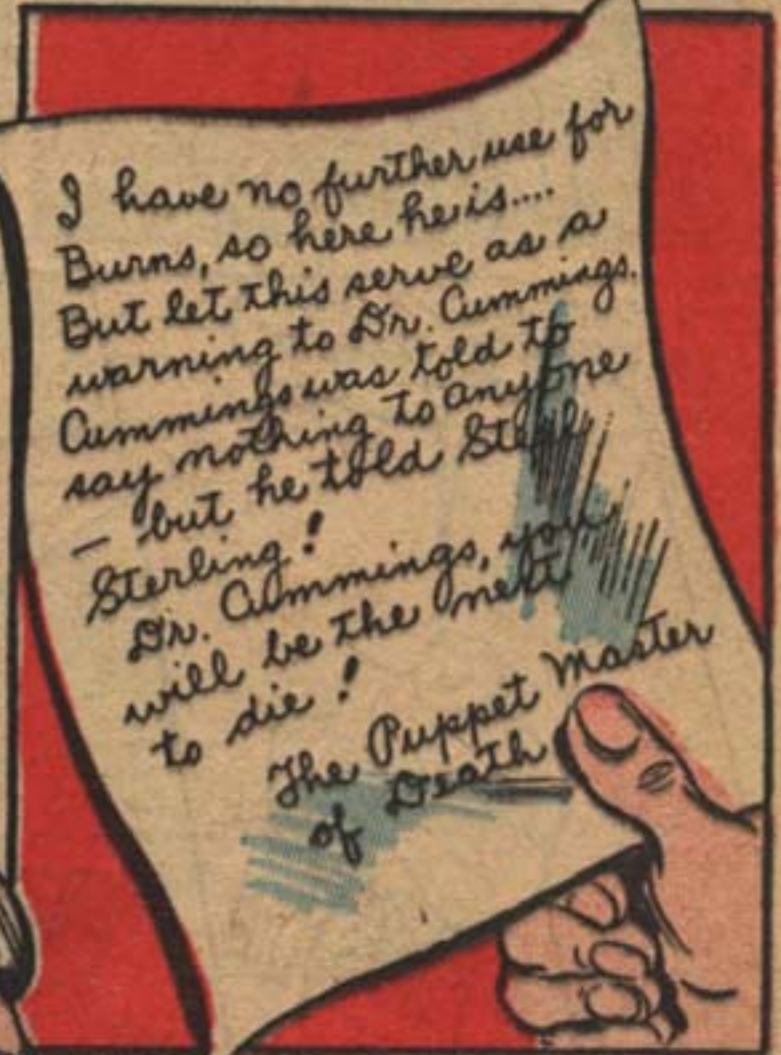 I have no further use for
Burns, so here he is....
But let this serve as a
warning to Dr. Cummings.
Cummings was told to
say nothing to anyone
— but he told Steel
Sterling!
Dr. Cummings, you
will be the next
to die!
The Puppet Master
of Death